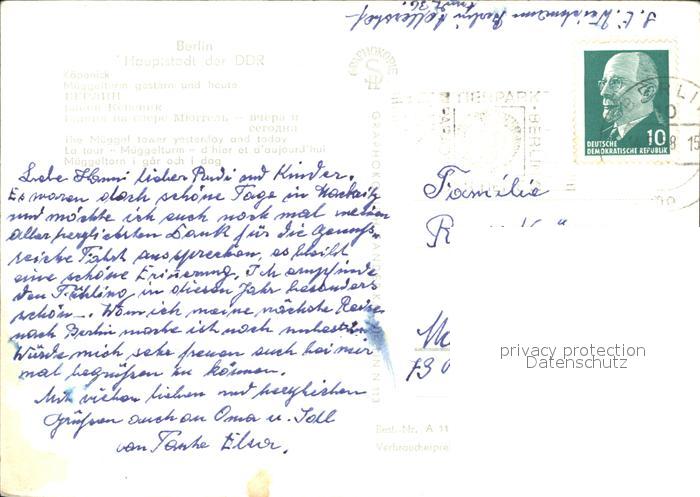 Berlin
Hauptstadt der DDR
Köpenick
Müggelturm gestern und heute
БЕРЛИН
The Müggel tower yesterday and today
La tour - Müggelturm - d'hier et d'aujourd'hui
Müggeltorn i går och i dag
Liebe Hanni lieber Rudi und Kinder.
Es waren doch schöne Tage in
und möchte ich auch noch mal meinen
allerherzlichsten Dank für die
reiche Fahrt aussprechen, es bleibt
eine schöne Erinnerung. Ich empfinde
den Frühling in diesen Jahr besonders
schön. Wenn ich meine nächste Reise
nach Berlin mache ist noch unbestimmt
Würde mich sehr freuen auch bei mir
mal begrüßen zu können.
Mit vielen lieben und herzlichen
Grüßen auch an Oma u.
von Tante Elsa.
Berlin
TIERPARK
BERLIN
DEUTSCHE
DEMOKRATISCHE REPUBLIK
10
BERLIN
8 15
Familie
R
privacy protection
Datenschutz
Best.-Nr. A 11
Verbraucherpre